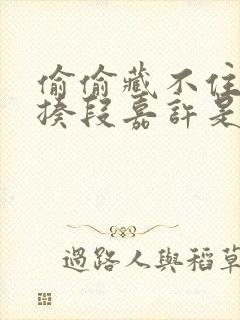 偷偷藏不住
揍段嘉許是
過路人與稻草